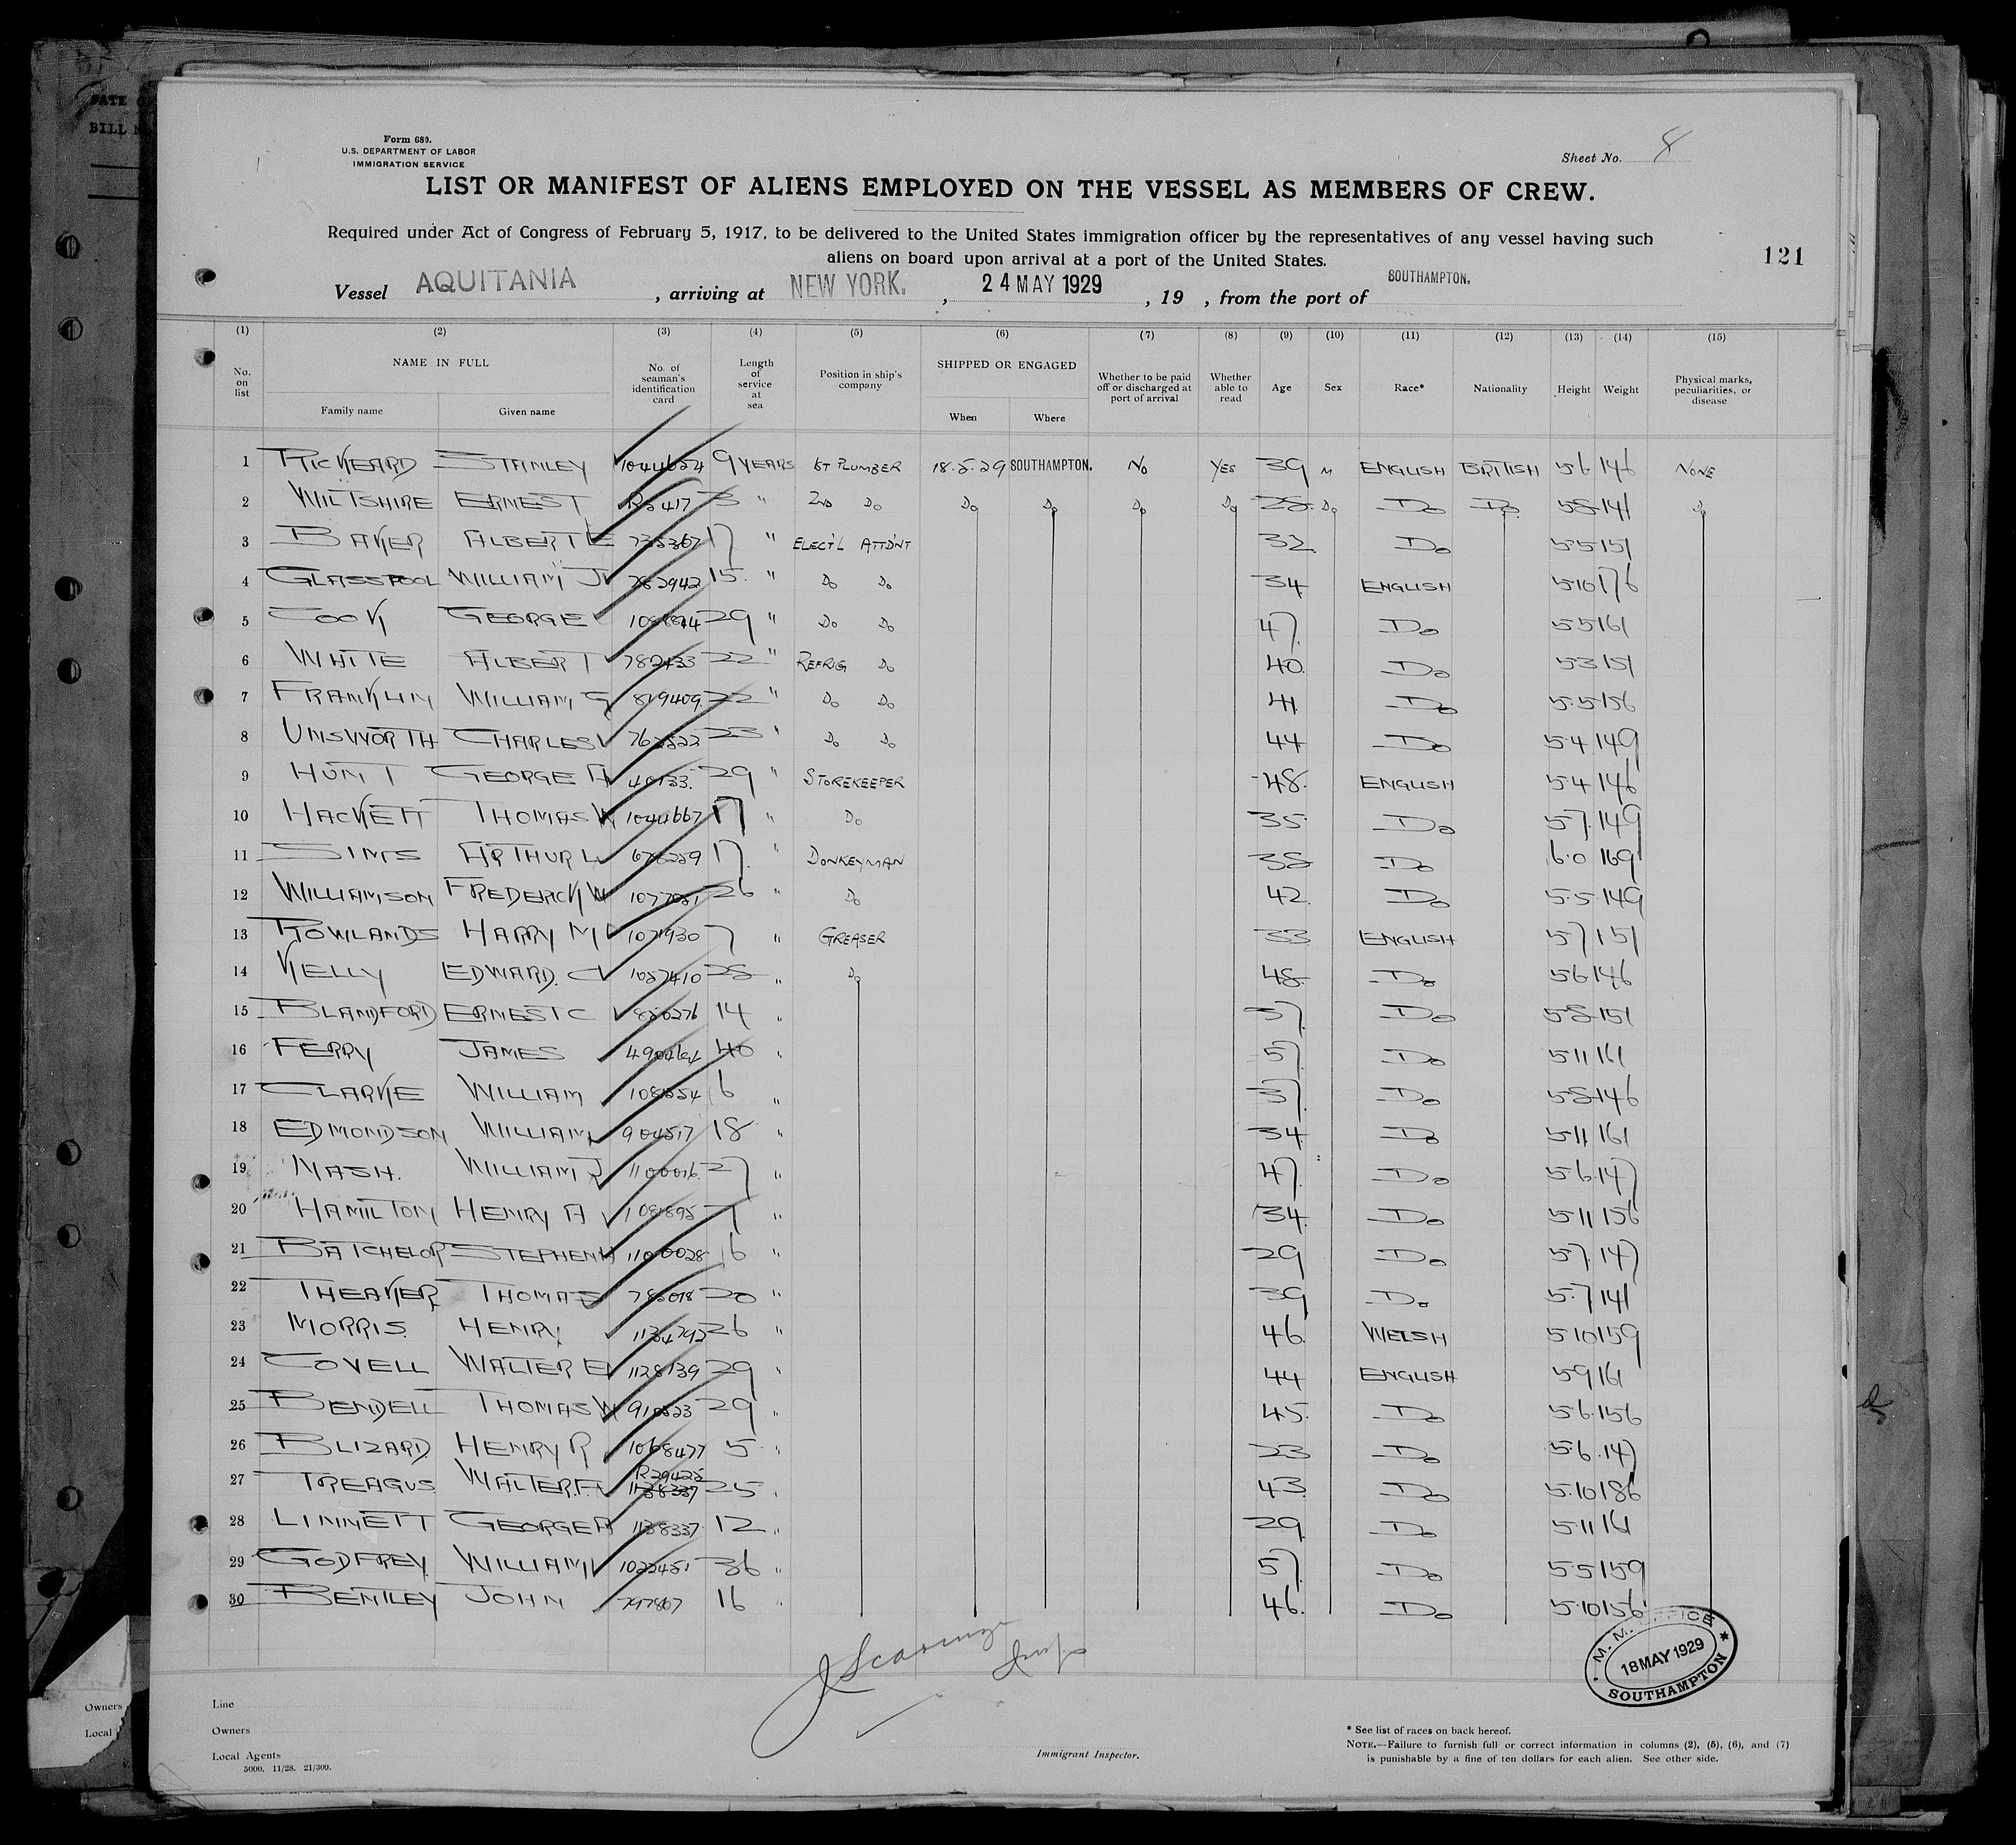 DATE O
BILL N
Form 689.
U.S. DEPARTMENT OF LABOR
IMMIGRATION SERVICE
Sheet No. 8
LIST OR MANIFEST OF ALIENS EMPLOYED ON THE VESSEL AS MEMBERS OF CREW.
Required under Act of Congress of February 5, 1917, to be delivered to the United States immigration officer by the representatives of any vessel having such
aliens on board upon arrival at a port of the United States.
121
Vessel AQUITANIA , arriving at NEW YORK. , 24 MAY 1929 , 19 , from the port of SOUTHAMPTON.
(1) (2) (3) (4) (5) (6) (7) (8) (9) (10) (11) (12) (13) (14) (15)
No. on list NAME IN FULL Family name Given name No. of seaman's identification card Length of service at sea Position in ship's company SHIPPED OR ENGAGED When Where Whether to be paid off or discharged at port of arrival Whether able to read Age Sex Race* Nationality Height Weight Physical marks, peculiarities, or disease
1 RICKEARD STANLEY 1044624 9 YEARS 1ST PLUMBER 18.5.29 SOUTHAMPTON. NO YES 39 M ENGLISH BRITISH 5.6 146 NONE
2 WILTSHIRE ERNEST " 2ND DO DO DO DO DO 28 DO DO DO 5.8 141 DO
3 BAKER ALBERT E 735367 17 " ELECT'L ATTD'NT 32 DO 5.5 151
4 GLASSPOOL WILLIAM J 782942 15 " DO DO 34 ENGLISH 5.10 176
5 COOK GEORGE 29 " DO DO 47 DO 5.5 161
6 WHITE ALBERT 782433 22 " REFRIG DO 40 DO 5.3 151
7 FRANKLIN WILLIAM G 819409 22 " DO DO 41 DO 5.5 156
8 UNSWORTH CHARLES 23 " DO DO 44 DO 5.4 149
9 HUNT GEORGE A 29 " STOREKEEPER 48 ENGLISH 5.4 146
10 HACKETT THOMAS W 1044667 17 " DO 35 DO 5.7 149
11 SIMS ARTHUR W 17 " DONKEYMAN 38 DO 6.0 169
12 WILLIAMSON FREDERICK W 26 " DO 42 DO 5.5 149
13 ROWLANDS HARRY M 1071930 7 " GREASER 33 ENGLISH 5.7 151
14 KELLY EDWARD. C 1057410 28 " DO 48 DO 5.6 146
15 BLANDFORD ERNEST C 14 " 37 DO 5.8 151
16 FERRY JAMES 40 " 57 DO 5.11 161
17 CLARKE WILLIAM 6 " 37 DO 5.8 146
18 EDMONDSON WILLIAM 904517 18 " 34 DO 5.11 161
19 NASH. WILLIAM J 1100016 27 " 47 DO 5.6 147
20 HAMILTON HENRY A 7 " 34 DO 5.11 156
21 BATCHELOR STEPHEN 1100028 6 " 29 DO 5.7 147
22 THEAKER THOMAS 20 " 39 DO 5.7 141
23 MORRIS. HENRY 1134792 26 " 46 WELSH 5.10 159
24 COVELL WALTER E 1128139 29 " 44 ENGLISH 5.9 161
25 BENDELL THOMAS W 29 " 45 DO 5.6 156
26 BLIZARD. HENRY R 1068477 5 " 23 DO 5.6 147
27 TREAGUS WALTER.F. R29425 1138337 25 " 43 DO 5.10 186
28 LINNETT GEORGE A 1138337 12 " 29 DO 5.11 161
29 GODFREY WILLIAM 1022451 36 " 57 DO 5.5 159
30 BENTLEY JOHN 16 " 46 DO 5.10 156
Insp
M. M. OFFICE
18 MAY 1929
SOUTHAMPTON
Line
Owners
Local Agents
5000. 11/28. 21/309.
Immigrant Inspector.
* See list of races on back hereof.
NOTE.—Failure to furnish full or correct information in columns (2), (5), (6), and (7)
is punishable by a fine of ten dollars for each alien. See other side.
Owners
Local